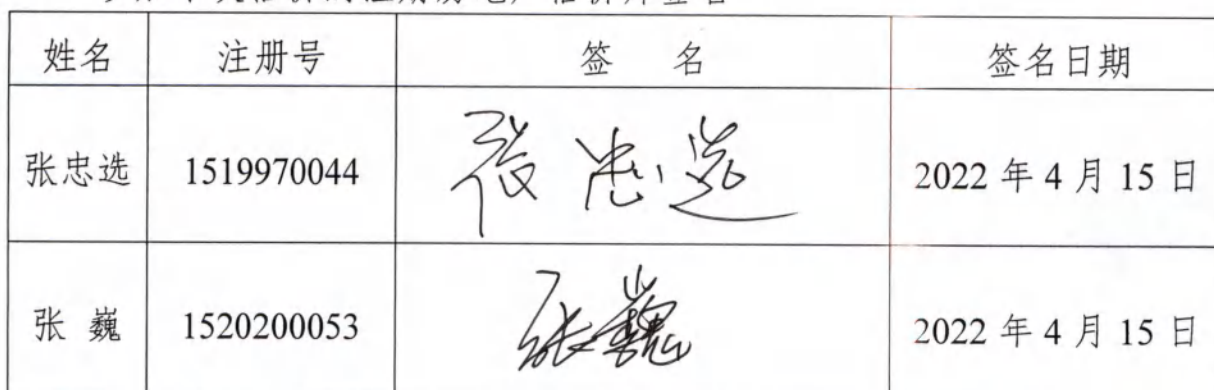 姓名 注册号 签 名 签名日期
张忠选 1519970044 张忠选 2022 年 4 月 15 日
张 巍 1520200053 张巍 2022 年 4 月 15 日